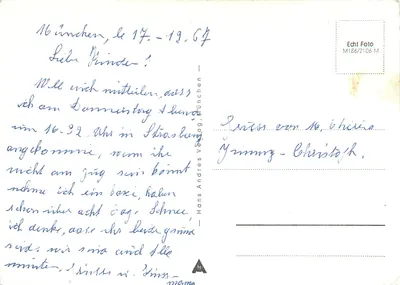 München, le 17.-12.67
Liebe Kinder!
Will euch mitteilen, dass
ich am Donnerstag Abend
um 16.92 Uhr in Strasburg
angkomme, wenn ihr
nicht am zug sein könnt
nehme ich ein taxi, haben
schon über acht tage Schnee,
ich denke, dass ihr beide gesund
seids wir sind auch alle
munter. Grüsse u. Küsse
mama
Grüsse von
Christoph.
Echt Foto
M186/2106 M
— Hans Andres Verlag, München —